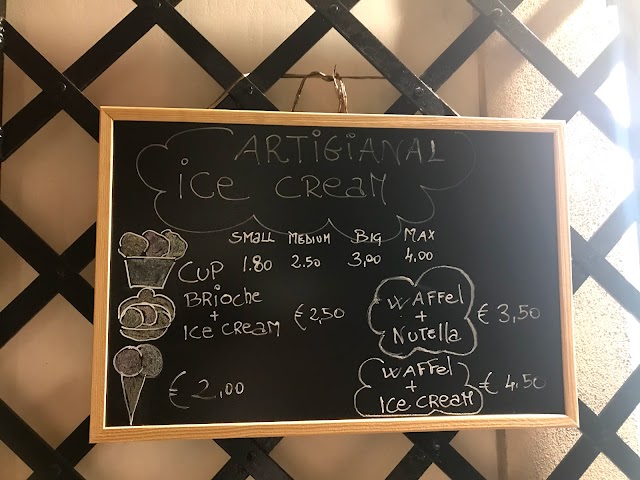 ARTIGIANAL
ice CREAM
SMALL MEDIUM BIG MAX
CUP 1.80 2.50 3,00 4.00
BRiOCHe
+
ice CREAM € 2,50
€ 2,00
WAFFel
+
NUTellA € 3,50
WAFFel
+
ICE CREAM € 4.50